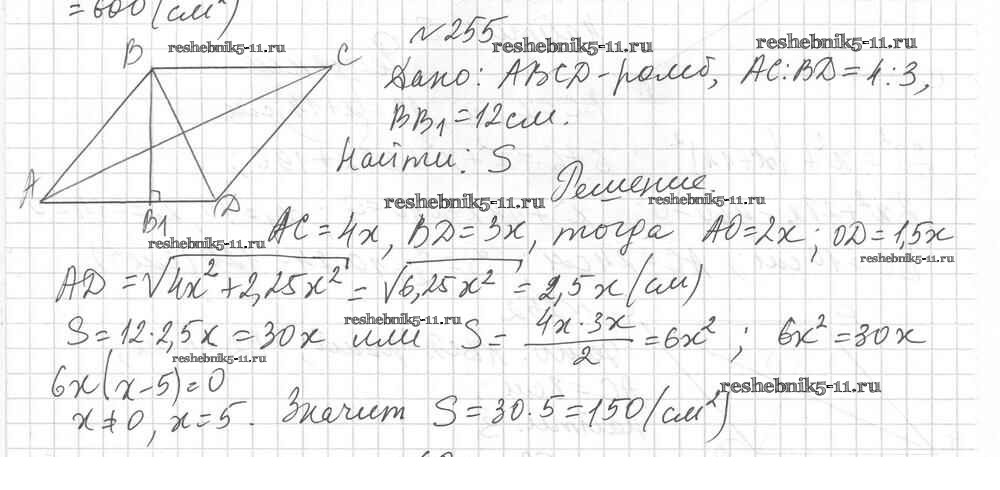 = 600 (см²)
№ 255
B C
resheknik5-11.ru
resheknik5-11.ru
resheknik5-11.ru
Дано: ABCD - ромб, AC:BD = 4:3,
BB₁ = 12 см.
Найти: S
A
Решение.
resheknik5-11.ru
resheknik5-11.ru
B₁ D
resheknik5-11.ru
AC = 4x, BD = 3x, тогда AO = 2x; OD = 1,5x
resheknik5-11.ru
AD = √4x² + 2,25x² = √6,25x² = 2,5x (см)
resheknik5-11.ru
S = 12·2,5x = 30x или S = 4x·3x/2 = 6x²; 6x² = 30x
resheknik5-11.ru
6x(x-5) = 0
resheknik5-11.ru
x ≠ 0, x = 5. Значит S = 30·5 = 150 (см²)